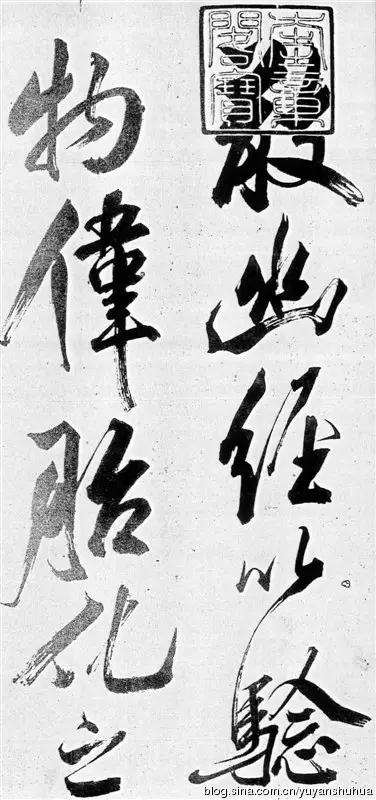 散幽經以騐
物偉胎化之
奎章
閣寶
blog.sina.com.cn/yuyanshuhua